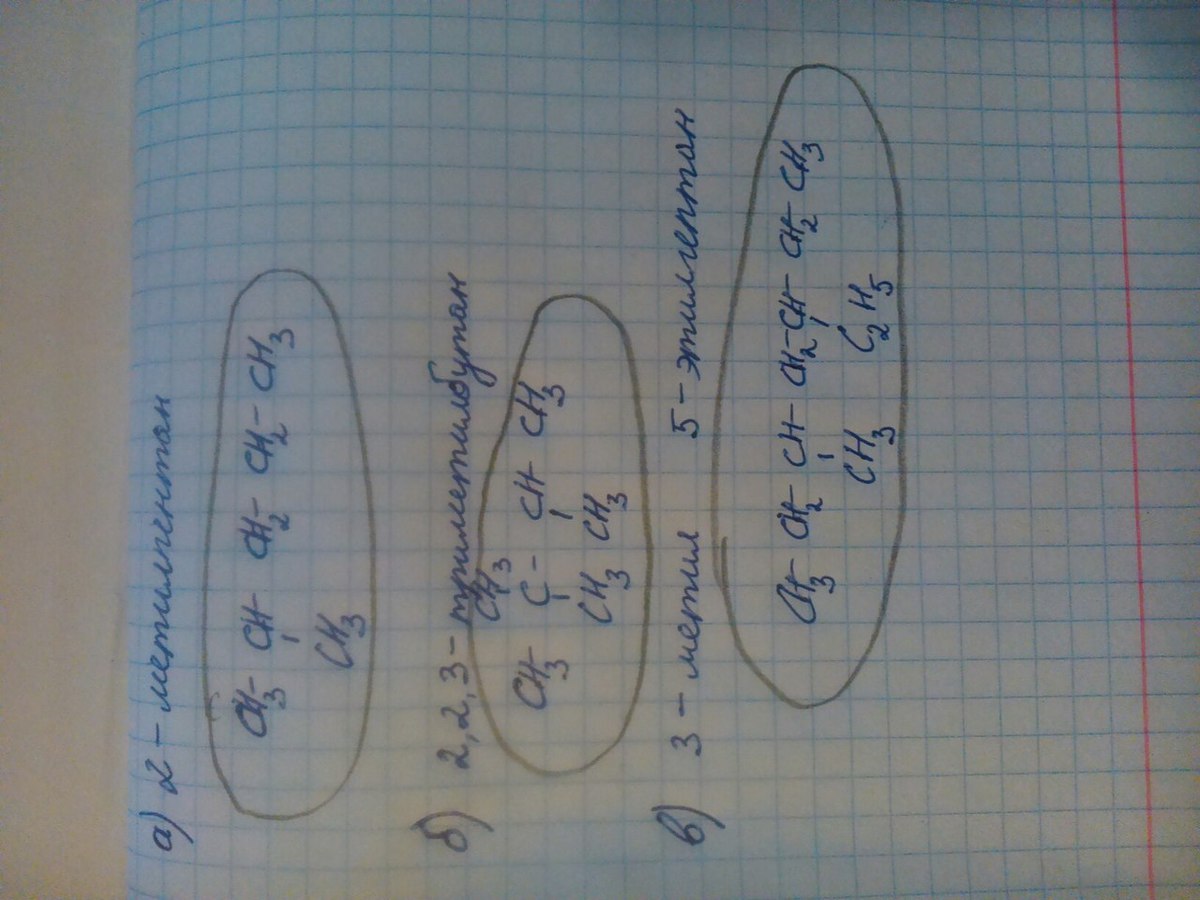 а) 2 - метилпентан
CH3 - CH - CH2 - CH2 - CH3
CH3
б) 2,2,3 - триметилбутан
CH3
CH3 - C - CH - CH3
CH3 CH3
в) 3 - метил 5 - этилгептан
CH3 - CH2 - CH - CH2 - CH - CH2 - CH3
CH3 C2H5